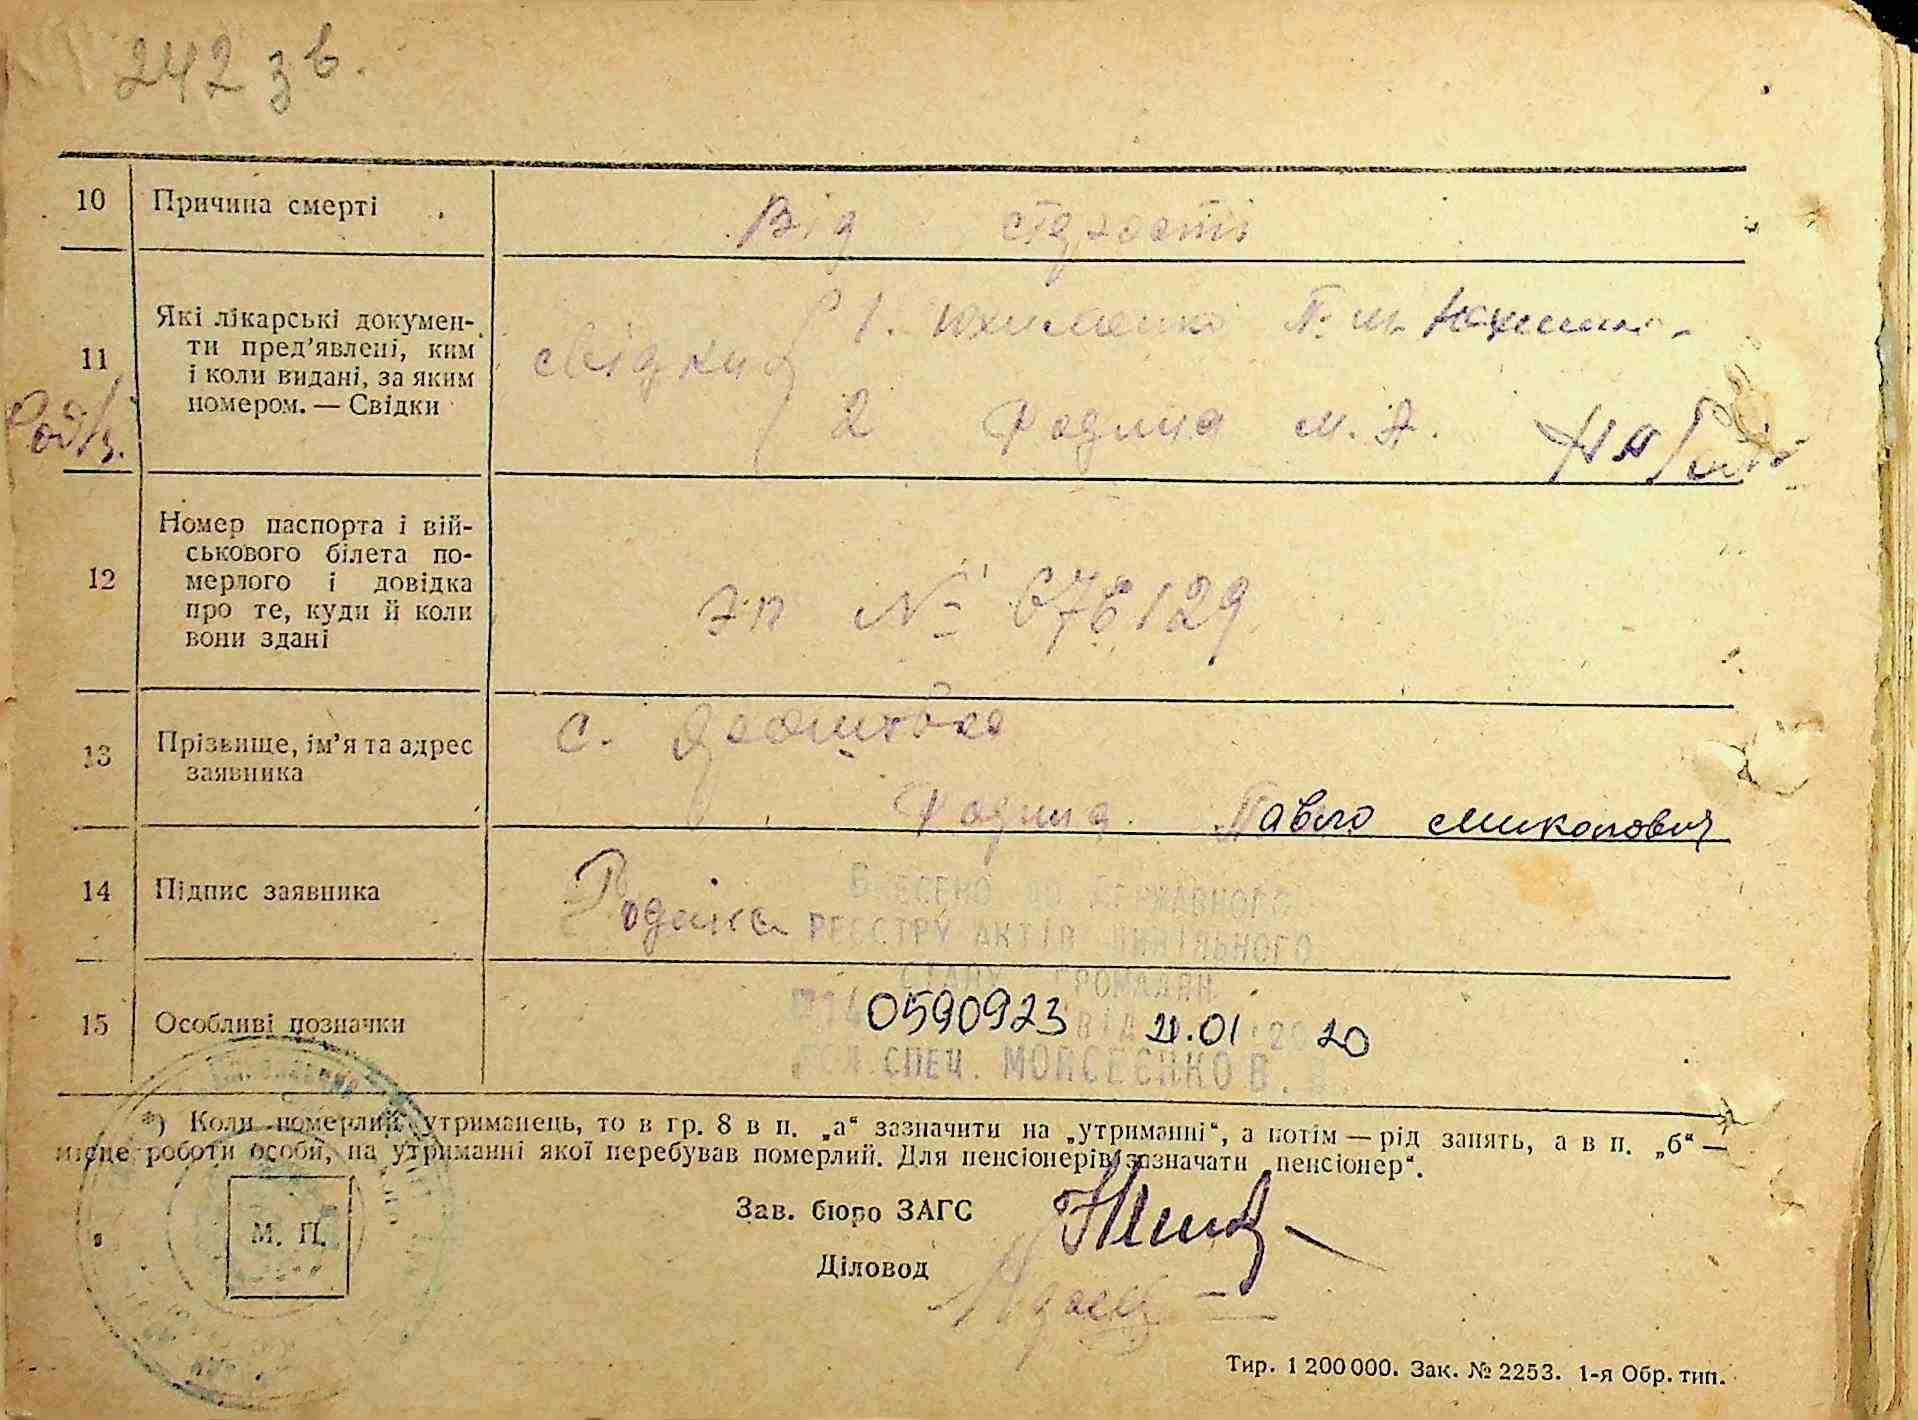 242 зв.
10 Причина смерті
Від старості
11 Які лікарські докумен-
ти пред'явлені, ким
і коли видані, за яким
номером. — Свідки
свідки 1. Юхименко П. Ш. Юхименко
2 Родина М. А.
12 Номер паспорта і вій-
ськового білета по-
мерлого і довідка
про те, куди й коли
вони здані
№ 678129
13 Прізвище, ім'я та адрес
заявника
с.
Родина Павло Миколович
14 Підпис заявника
Родина
ВНЕСЕНО ДО ДЕРЖАВНОГО
РЕЄСТРУ АКТІВ ЦИВІЛЬНОГО
СТАНУ ГРОМАДЯН
15 Особливі позначки
0590923 ВІД 21.01.2020
ГОЛ.СПЕЦ. МОЙСЕЄНКО В.
*) Коли померлий утриманець, то в гр. 8 в п. „а“ зазначити на „утриманні“, а потім — рід занять, а в п. „б“ —
місце роботи особи, на утриманні якої перебував померлий. Для пенсіонерів зазначати „пенсіонер“.
Зав. бюро ЗАГС
М. П.
Діловод
Тир. 1 200 000. Зак. № 2253. 1-я Обр. тип.